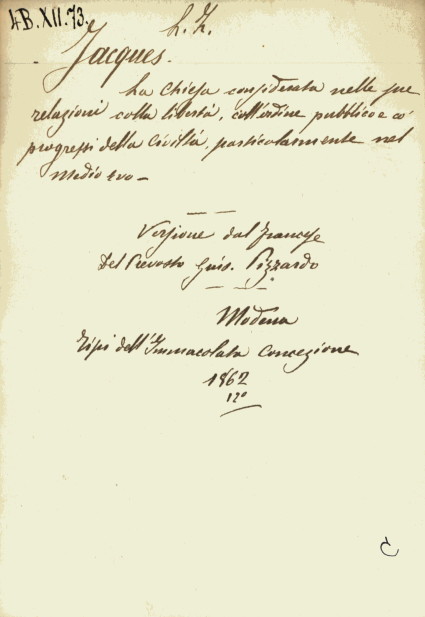 4B.XII.73.
L. Z.
Jacques.
La Chiesa considerata nelle sue
relazioni colla libertá, coll'ordine pubblico e co'
progressi della Civiltà, particolarmente nel
Medio Evo —
Versione dal Francese
Del Prevosto Gius. Pizzardo
Modena
Tipi dell'Immacolata Concezione
1862
12º